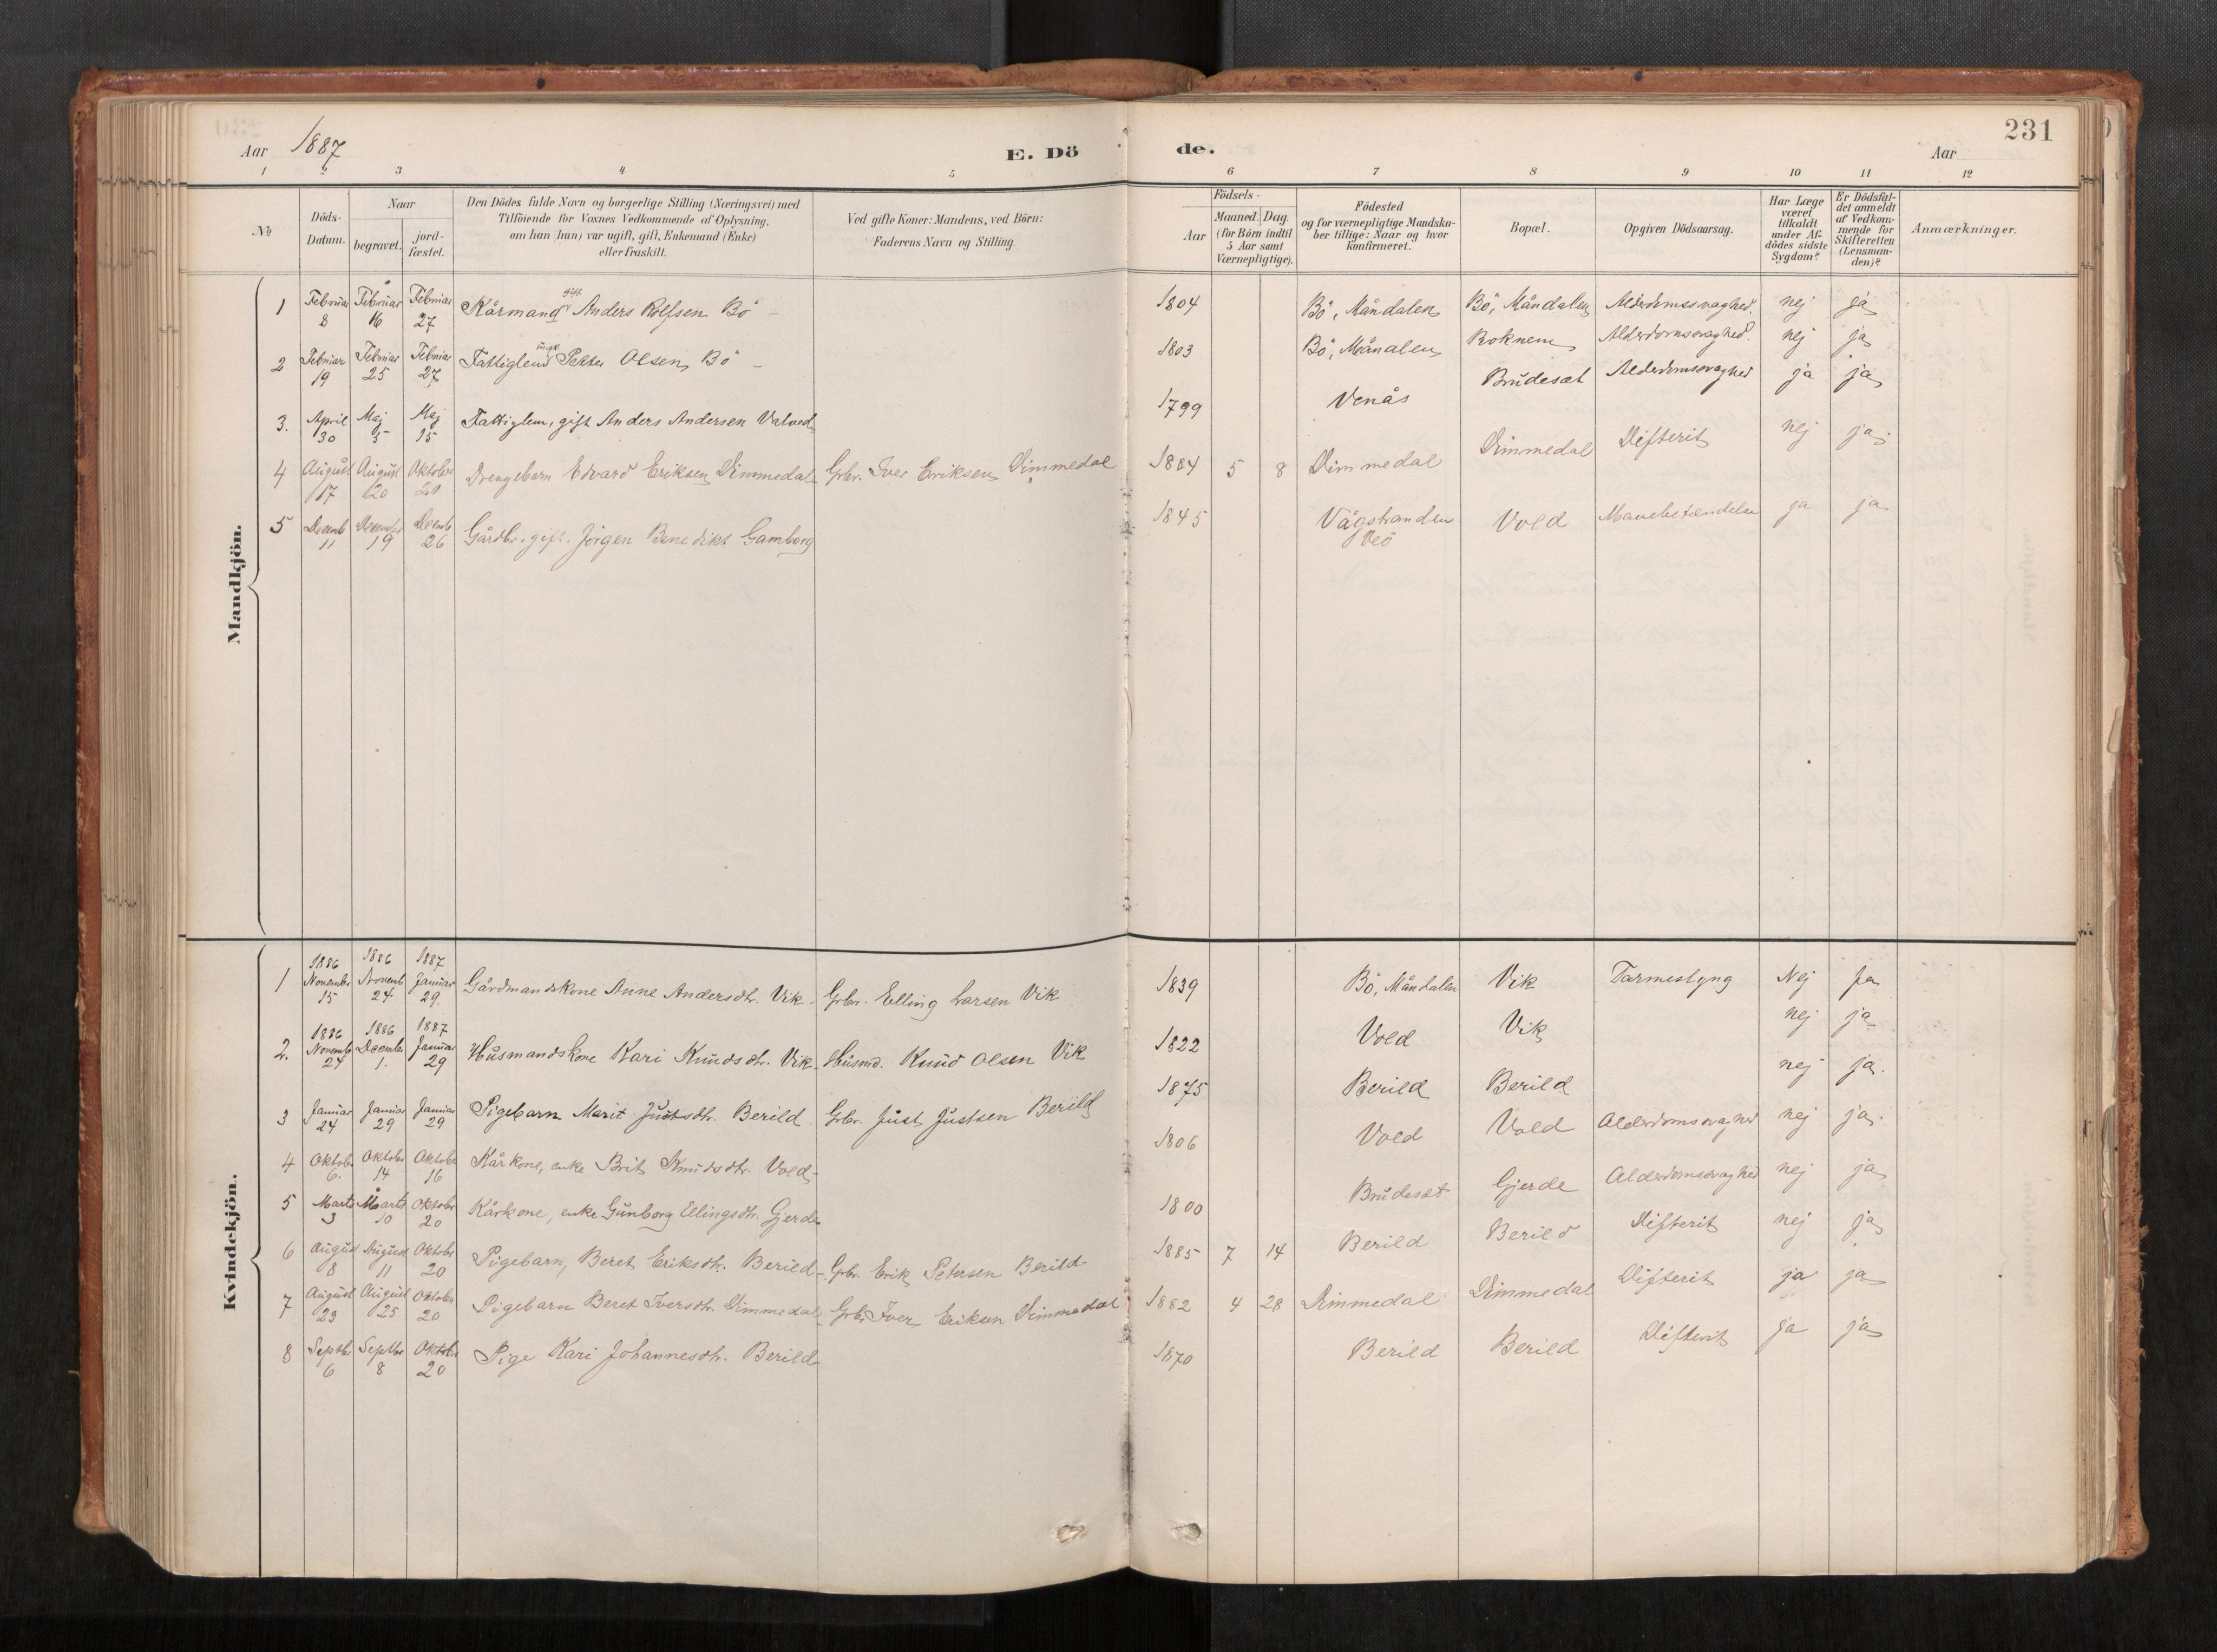 231
Aar 1887
E. Dö de.
Aar
1 2 3 4 5 6 7 8 9 10 11 12
No
Döds-Datum.
Naar
begravet.
jord-fæstet.
Den Dödes fulde Navn og borgerlige Stilling (Næringsvei) med
Tilföiende for Voxnes Vedkommende af Oplysning,
om han (hun) var ugift, gift, Enkemand (Enke)
eller fraskilt.
Ved gifte Koner: Mandens, ved Börn:
Faderens Navn og Stilling.
Födsels-
Aar
Maaned. Dag.
(for Börn indtil
5 Aar samt
Værnepligtige).
Födested
og for værnepligtige Mandska-
ber tillige: Naar og hvor
konfirmeret.
Bopæl.
Opgiven Dödsaarsag.
Har Læge
været
tilkaldt
under Af-
dödes sidste
Sygdom?
Er Dödsfal-
det anmeldt
af Vedkom-
mende for
Skifteretten
(Lensman-
den)?
Anmærkninger.
Mandkjön.
1 Februar 8 Februar 16 Februar 27 Kårmand gift Anders Rolfsen Bö - 1804 Bö, Måndalen Bö, Måndalen Alderdomssvaghed. nej ja
2 Februar 19 Februar 25 Februar 27 Fattiglem ugift Petter Olsen Bö - 1803 Bö, Månalen Roknem Alderdomssvaghed. nej ja
3. April 30 Maj 5 Maj 15 Fattiglem, gift Anders Andersen Valved 1799 Venås Brudesæt Alderdomssvaghed ja ja
4 August 17 August 20 Oktober 20 Drengebarn Edvard Eriksen Dimmedal Grbr. Iver Eriksen Dimmedal 1884 5 8 Dimmedal Dimmedal Difterit nej ja
5 Decemb 11 December 19 Decemb 26 Gårdbr. gift. Jörgen Benedikt Gamborg 1845 Vågstranden Veö Vold Mavebetændelse ja ja
Kvindekjön.
1 1886 Novembr 15 1886 Novemb 24 1887 Januar 29. Gårdmandskone Anne Andersdtr. Vik - Grbr. Elling Larsen Vik 1839 Bö, Måndalen Vik Tarmeslyng Nej Ja
2. 1886 Novembr 24 1886 Decembr 1. 1887 Januar 29 Husmandskone Kari Knudsdtr. Vik Husmd. Knud Olsen Vik 1822 Vold Vik nej ja
3 Januar 24 Januar 29 Januar 29 Pigebarn Marit Justsdtr. Berild Grbr. Just Justsen Berild 1875 Berild Berild nej ja.
4 Oktobr 6. Oktobr 14 Oktobr 16 Kårkone, enke Brit Knudsdtr. Vold - 1806 Vold Vold Alderdomssvaghed nej ja.
5 Marts 3 Marts 10 Oktobr 20 Kårkone, enke Gunborg Ellingsdtr. Gjerde 1800 Brudesæt Gjerde Alderdomssvaghed nej ja
6 August 8 August 11 Oktobr 20 Pigebarn, Beret Eriksdtr. Berild - Grbr. Erik Petersen Berild 1885 7 14 Berild Berild Difterit nej ja
7 August 23 August 25 Oktobr 20 Pigebarn Beret Iversdtr. Dimmedal Grbr. Iver Eriksen Dimmedal 1882 4 28 Dimmedal Dimmedal Difterit ja ja
8 Septbr 6 Septbr 8 Oktobr 20 Pige Kari Johannesdtr. Berild 1870 Berild Berild Difterit ja ja